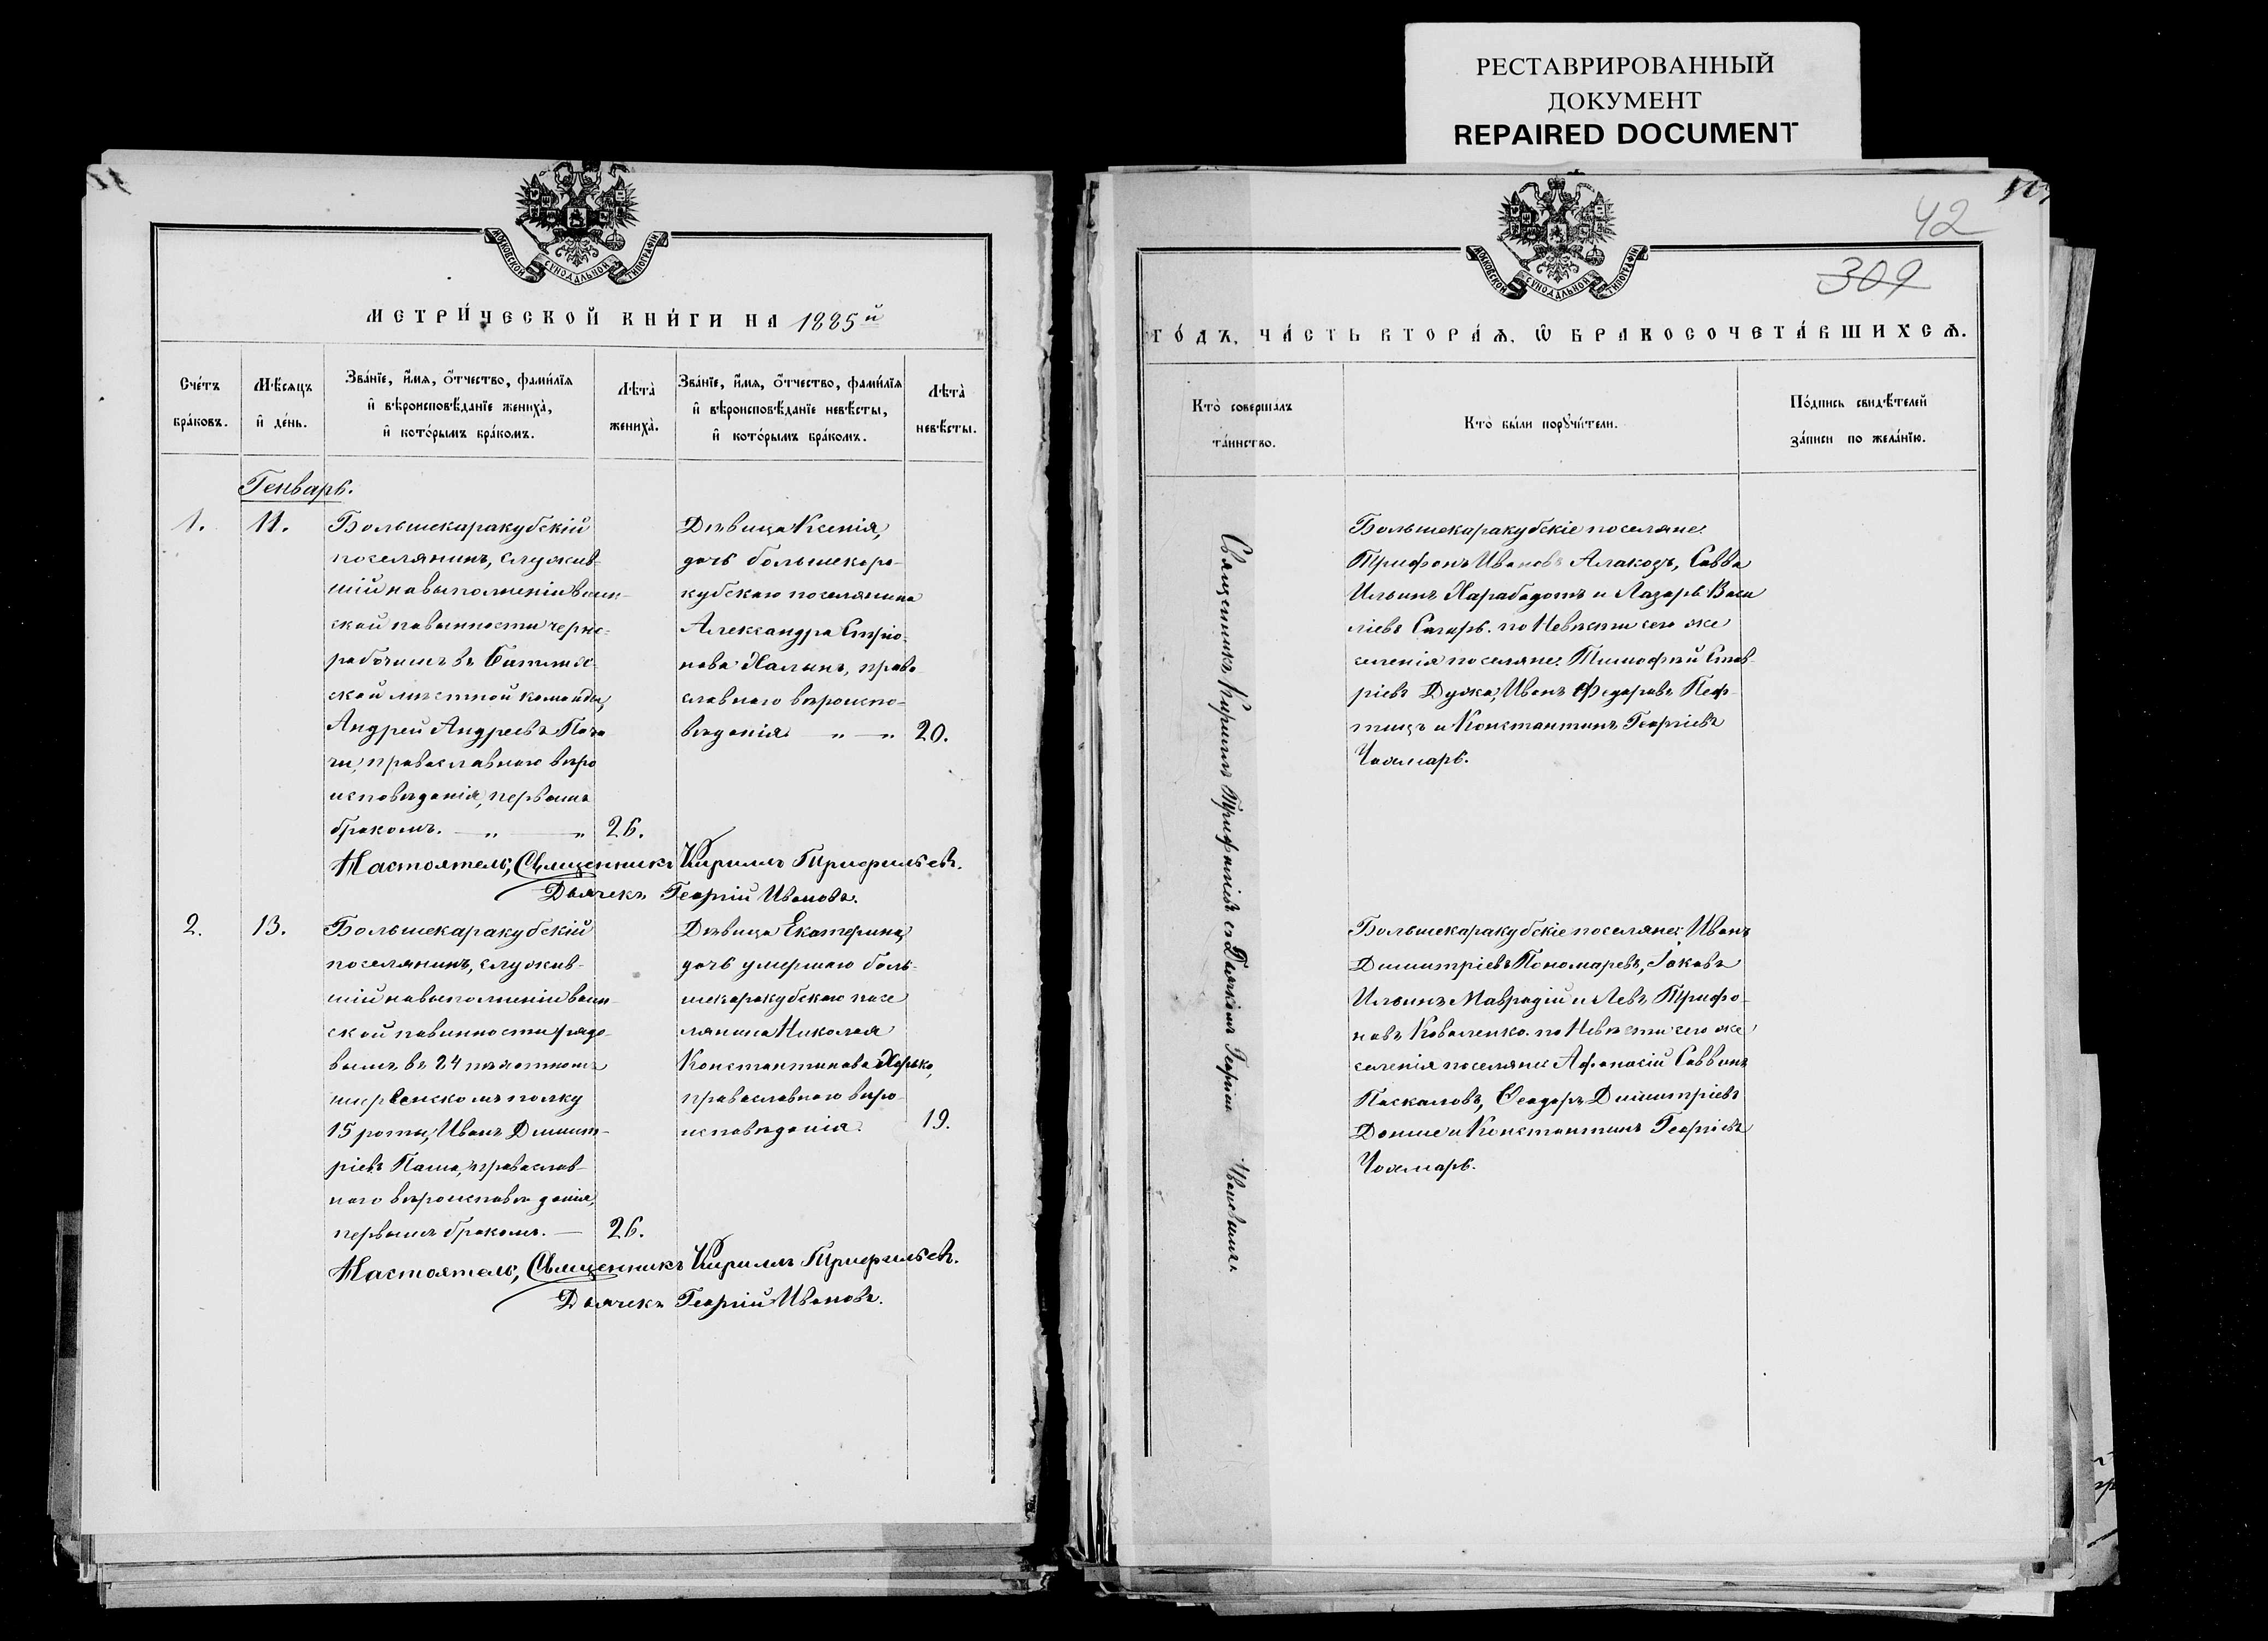 РЕСТАВРИРОВАННЫЙ
ДОКУМЕНТ
REPAIRED DOCUMENT
МОСКОВСКОЙ СѴНОДАЛЬНОЙ ТИПОГРАФІИ
МЕТРИ́ЧЕСКОЙ КНИ́ГИ НА 1885й
Сче́тъ
бра́ковъ.
Мѣ́сяцъ
и҆ де́нь.
Зва́нїе, и҆́мя, ѻ҆́тчество, фами́лїя
и҆ вѣроисповѣ́данїе жениха̀,
и҆ кото́рымъ бра́комъ.
Лѣ́та̀
жениха̀.
Зва́нїе, и҆́мя, ѻ҆́тчество, фами́лїя
и҆ вѣроисповѣ́данїе невѣ́сты,
и҆ кото́рымъ бра́комъ.
Лѣ́та̀
невѣ́сты.
Генварь.
1.
11.
Большекаракубскій
поселянинъ, служив-
шій на выполненіи воин-
ской повинности черно-
рабочимъ въ
ской мѣстной команды,
Андрей Андреевъ Пача
чи, православного вѣро
исповѣданія, первымъ
бракомъ. — „ — „
26.
Дѣвица Ксенія,
дочь большекара-
кубскаго поселянина
Александра
нова Халынъ, право-
славнаго вѣроиспо-
вѣданія — „ — „
20.
Настоятель, Священникъ Кириллъ Трифильевъ.
Дьячекъ Георгій Ивановъ.
2.
13.
Большекаракубскій
поселянинъ, служив-
шій на выполненіи воин-
ской повинности рядо-
вымъ въ 24 пѣхотномъ
полку
15 роты, Иванъ Димит-
ріевъ Паша, православ-
наго вѣроисповѣданія,
первымъ бракомъ. —
26.
Дѣвица Екатерина,
дочь умершаго боль-
шекаракубскаго посе
лянина Николая
Константинова Харько,
православнаго вѣро-
исповѣданія.
19.
Настоятель, Священникъ Кириллъ Трифильевъ.
Дьячекъ Георгій Ивановъ.
42
309
МОСКОВСКОЙ СѴНОДАЛЬНОЙ ТИПОГРАФІИ
ГО́ДЪ, ЧА́СТЬ ВТОРА́Ѧ, Ѽ БРАКОСОЧЕТА́ВШИХСѦ.
Кто̀ соверша́лъ
та́инство.
Кто̀ бы́ли порꙋчи́тели.
По́дпись свидѣ́телей
за́писи по жела́нїю.
Священникъ Кириллъ Трифильевъ съ Дьячкомъ Георгіемъ Ивановымъ.
Большекаракубскіе поселяне:
Трифонъ Ивановъ Алакозъ, Савва
Ильинъ Харабадотъ и Лазарь Васи
ліевъ Сагирь. по Невѣсти сего же
селенія поселяне: Тимофей Став-
ріевъ Дужа, Иванъ Федоровъ Пеф-
тицъ и Константинъ Георгіевъ
Чохмаръ.
Большекаракубскіе поселяне: Иванъ
Димитріевъ Пономаревъ, Іаковъ
Ильинъ Мавродій и Левъ Трифо-
новъ Коваленко. по Невѣсти сего же
селенія поселяне Афанасій Саввинъ
Паскаловъ, Ѳеодоръ Димитріевъ
Донше и Константинъ Георгіевъ
Чохмаръ.